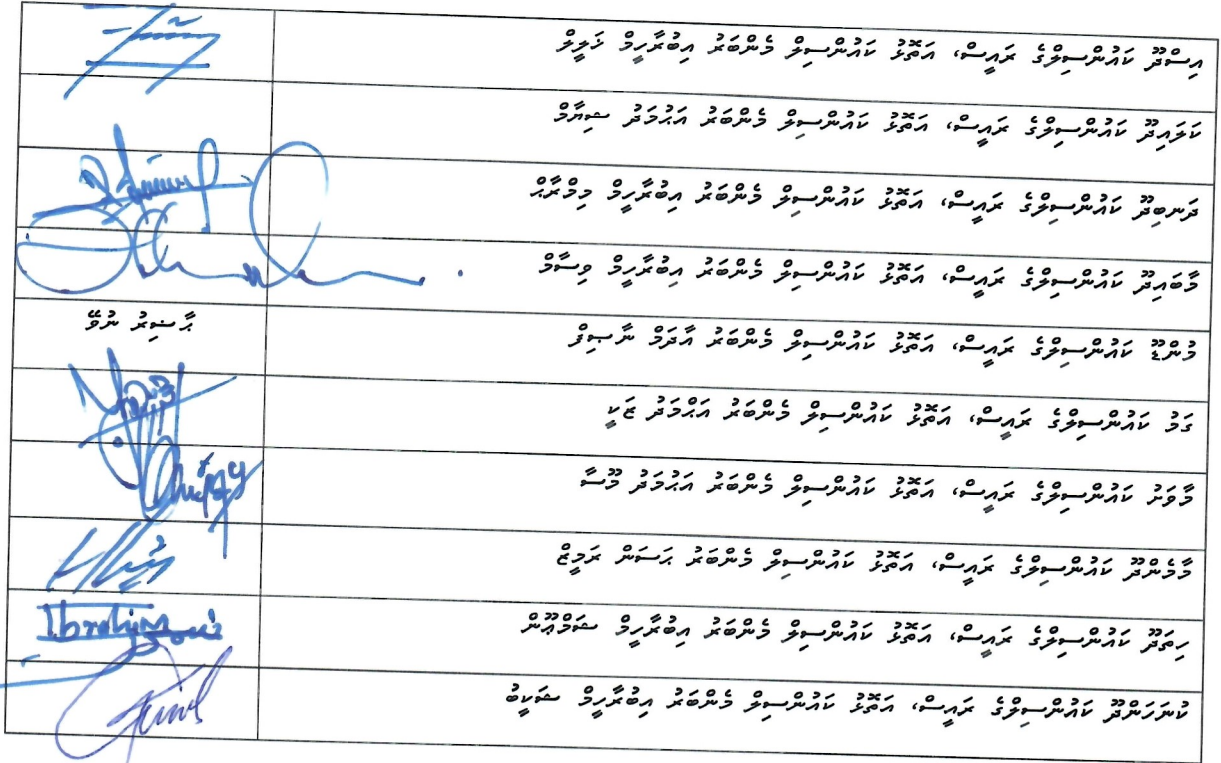 އިސްދޫ ކައުންސިލްގެ ރައީސް، އަތޮޅު ކައުންސިލް މެންބަރު އިބްރާހީމް ޚަލީލް
ކަލައިދޫ ކައުންސިލްގެ ރައީސް، އަތޮޅު ކައުންސިލް މެންބަރު އަޙުމަދު ޝިޔާމް
ދަނބިދޫ ކައުންސިލްގެ ރައީސް، އަތޮޅު ކައުންސިލް މެންބަރު އިބްރާހީމް މިމްރާޙް
މާބައިދޫ ކައުންސިލްގެ ރައީސް، އަތޮޅު ކައުންސިލް މެންބަރު އިބްރާހީމް ވިސާމް
މުންޑޫ ކައުންސިލްގެ ރައީސް، އަތޮޅު ކައުންސިލް މެންބަރު އާދަމް ނާޞިފް
ޙާޟިރު ނުވޭ
ގަމު ކައުންސިލްގެ ރައީސް، އަތޮޅު ކައުންސިލް މެންބަރު އަޙްމަދު ޒަކީ
މާވަށު ކައުންސިލްގެ ރައީސް، އަތޮޅު ކައުންސިލް މެންބަރު އަޙުމަދު މޫސާ
މާމެންދޫ ކައުންސިލްގެ ރައީސް، އަތޮޅު ކައުންސިލް މެންބަރު ޙަސަން ރަމީޒް
ހިތަދޫ ކައުންސިލްގެ ރައީސް، އަތޮޅު ކައުންސިލް މެންބަރު އިބުރާހީމް ޝަމްޢޫން
ކުނަހަންދޫ ކައުންސިލްގެ ރައީސް، އަތޮޅު ކައުންސިލް މެންބަރު އިބުރާހީމް ޝަކީބު